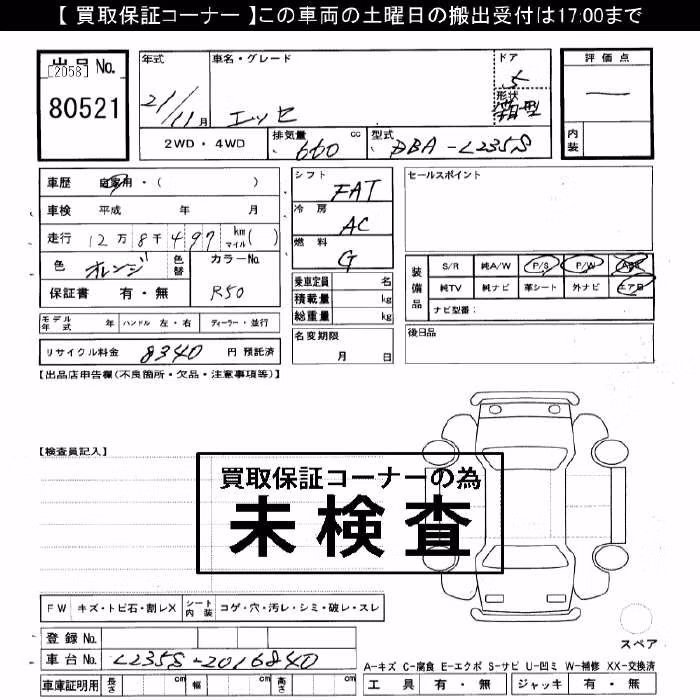 【 買取保証コーナー 】この車両の土曜日の搬出受付は17:00まで
出品 No.
[2058]
80521
年式
21/11月
車名・グレード
エッセ
ドア
5
形状
箱型
評価点
―
内装
2WD・4WD
排気量 cc
660
型式
DBA-L235S
車歴 自家用・( )
車検 平成 年 月
走行 12万8千497 km マイル ( )
色 オレンジ
色替
カラーNo.
R50
保証書 有・無
シフト
FAT
冷房
AC
燃料
G
乗車定員 名
積載量 kg
総重量 kg
名変期限
月 日
セールスポイント
装備品
S/R 純A/W P/S P/W ABS
純TV 純ナビ 革シート 外ナビ エアB
ナビ型番：
後日品
モデル年式 年 ハンドル 左・右 ディーラー・並行
リサイクル料金 8340 円 預託済
【出品店申告欄(不良箇所・欠品・注意事項等)】
【検査員記入】
買取保証コーナーの為
未検査
FW キズ・トビ石・割レX シート内装 コゲ・穴・汚レ・シミ・破レ・スレ
登録 No.
車台 No. L235S-2016840
車庫証明用 長さ cm 幅 cm 高さ cm
スペア
A-キズ C-腐食 E-エクボ S-サビ U-凹ミ W-補修 XX-交換済
工具 有・無 ジャッキ 有・無